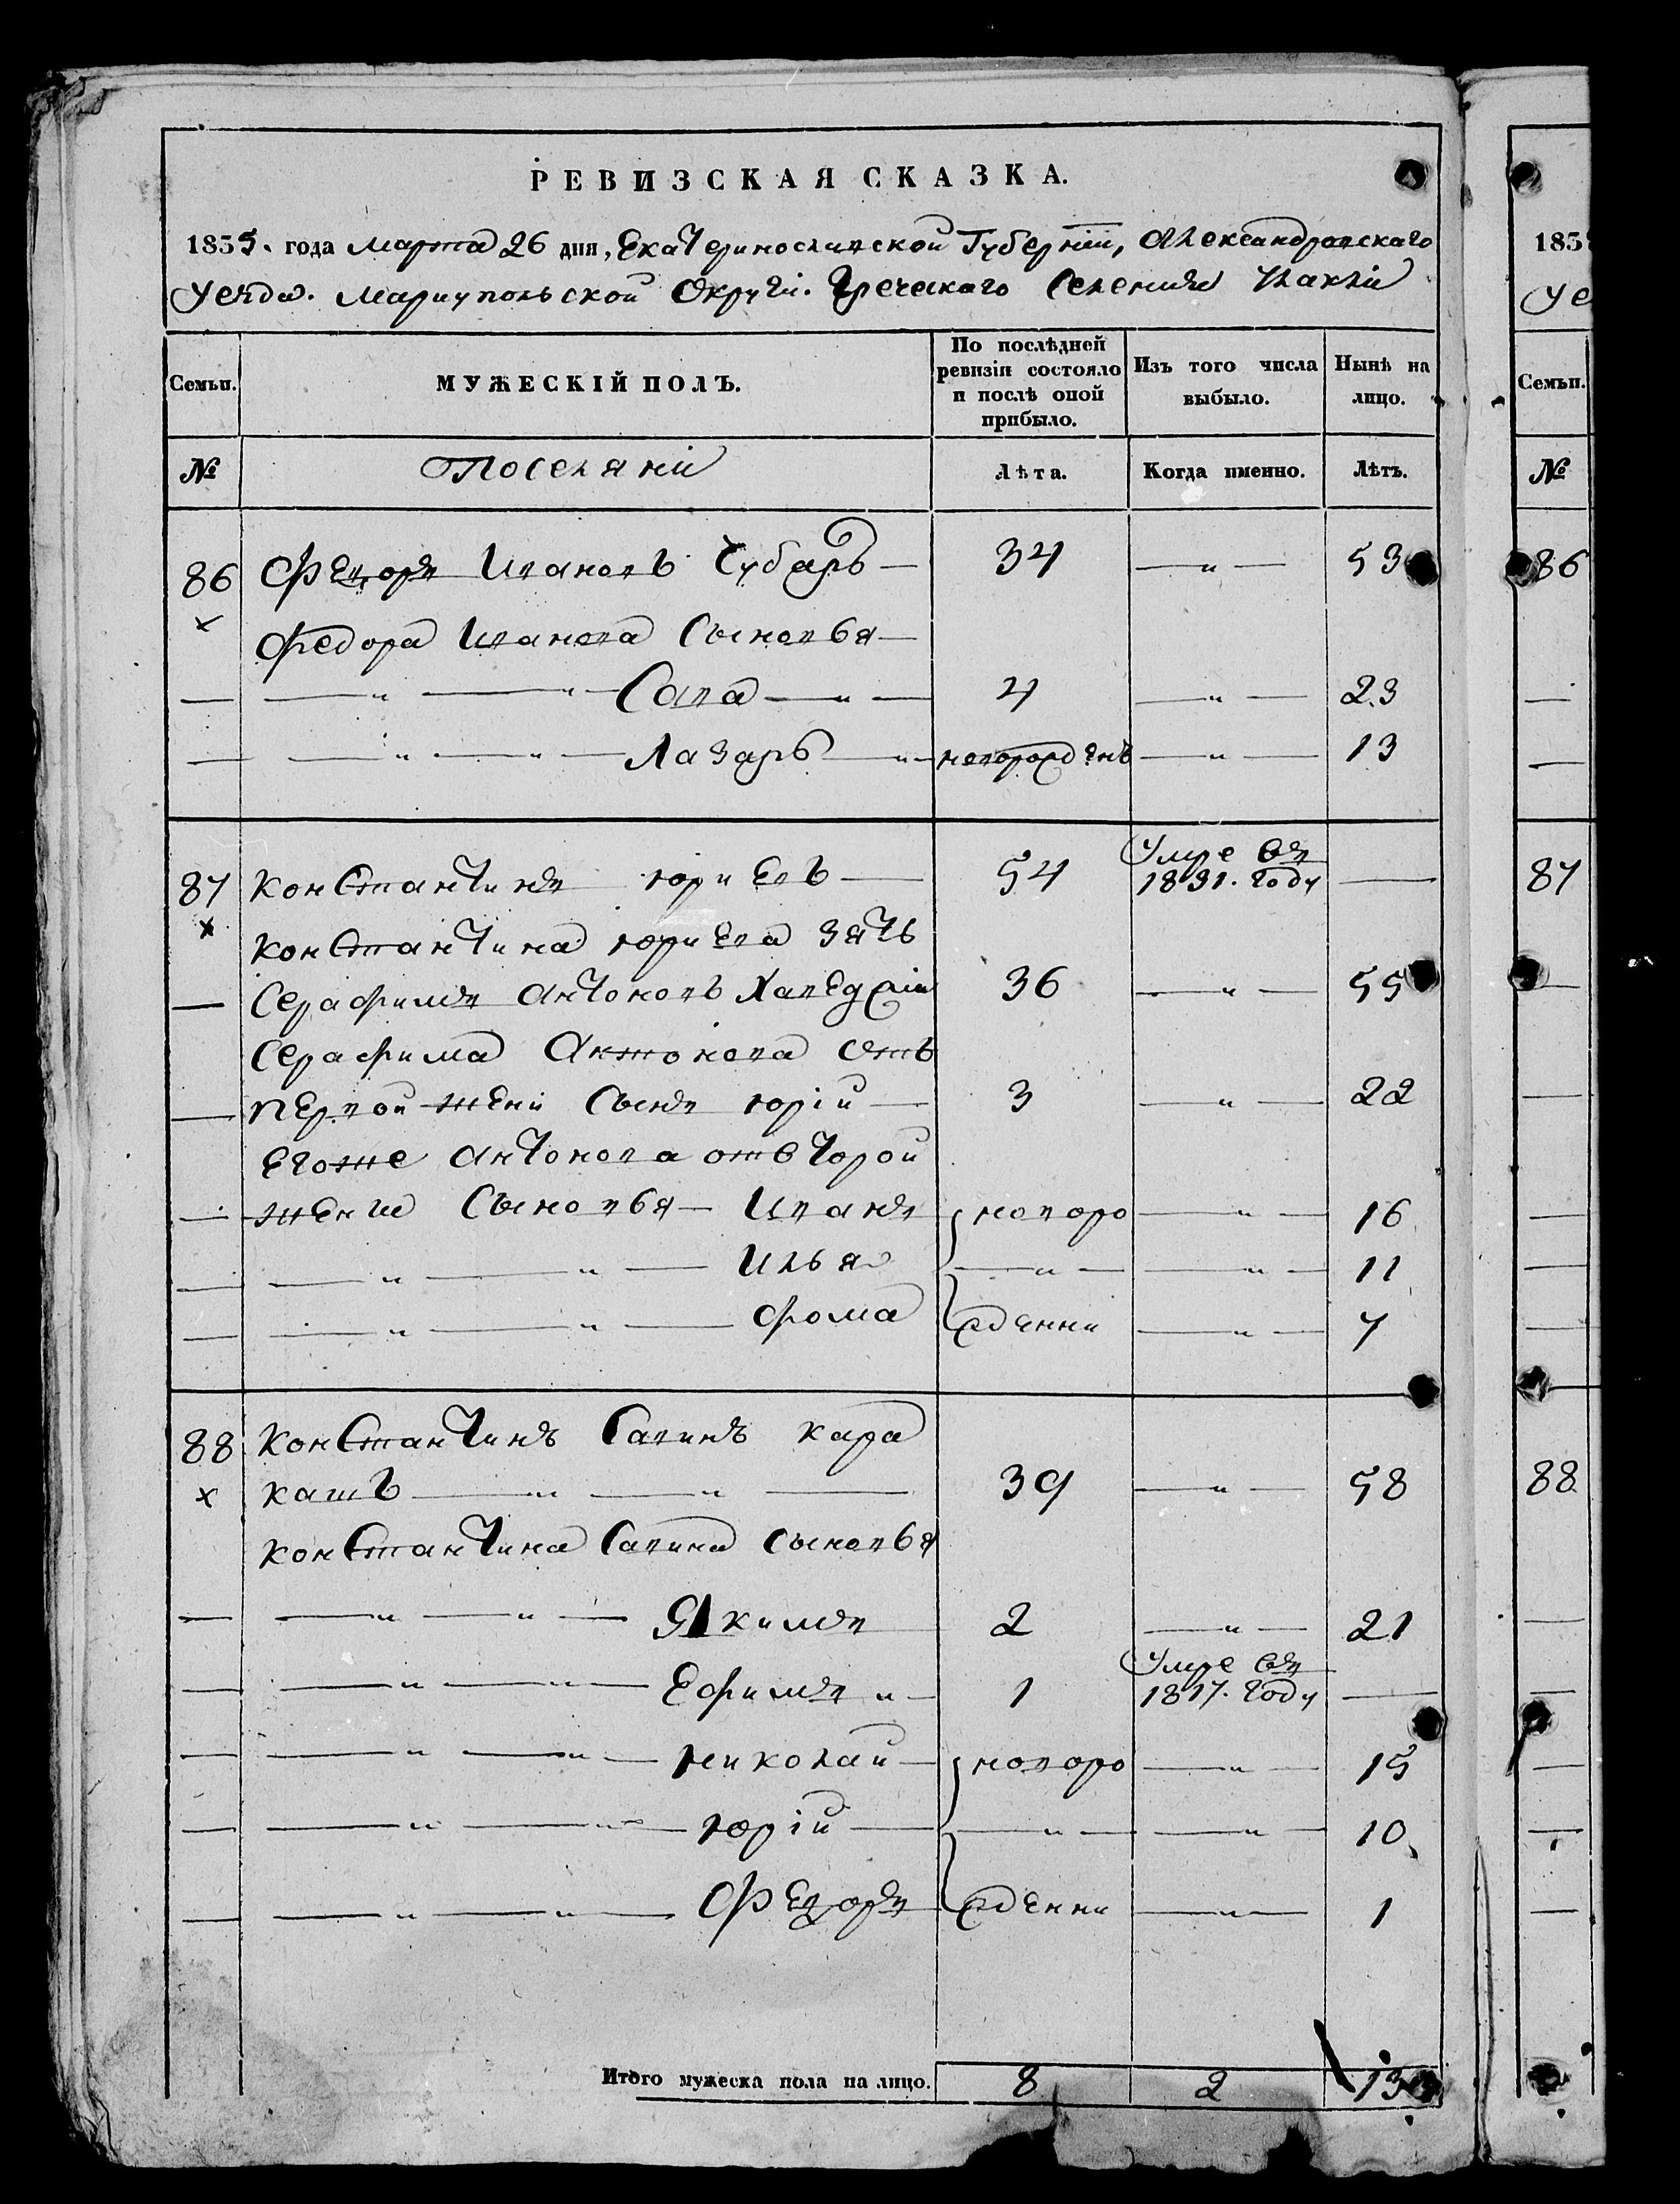 РЕВИЗСКАЯ СКАЗКА.
1835. года Марта 26 дня, Екатеринославской Губерніи, Александровскаго
Уезда. Мариупольской Округи. Греческаго Селения
Семьи. МУЖЕСКІЙ ПОЛЪ. По послѣдней ревизіи состояло и послѣ оной прибыло. Изъ того числа выбыло. Нынѣ на лицо.
№ Поселяни Лѣта. Когда именно. Лѣтъ.
86 Федоръ Ивановъ Чубарь — 34 — " — 53
Федора Иванова Сыновья —
— — " — " — Сава — " — 4 — " — 23
— — " — " — Лазарь — " — новорожденъ — " — 13
87 Константинъ Юриевъ — 54 Умре въ 1831. Году —
Константина Юриева Зять
— Серафимъ Антоновъ 36 — " — 55
Серафима Антонова отъ
— первой жени Сынъ Юрій — 3 — " — 22
Егоже Антонова отвторой
— жени Сыновья — Иванъ новоро — " — 16
— — " — " — Илья — " — — " — 11
— — " — " — Фома жденни — " — 7
88 Константинъ Савинъ Кара
кашъ — " — " — 39 — " — 58
Константина Савина Сыновья
— — " — " — Якимъ 2 — " — 21
— — " — " — Ефимъ " — 1 Умре въ 1817. Году —
— — " — " — Николай — новоро — " — 15
— — " — " — Юрій — — " — — " — 10
— — " — " — Федоръ жденни — " — 1
Итого мужеска пола на лицо. 8 2 13
183
Уе
Семьи.
№
86
87
88